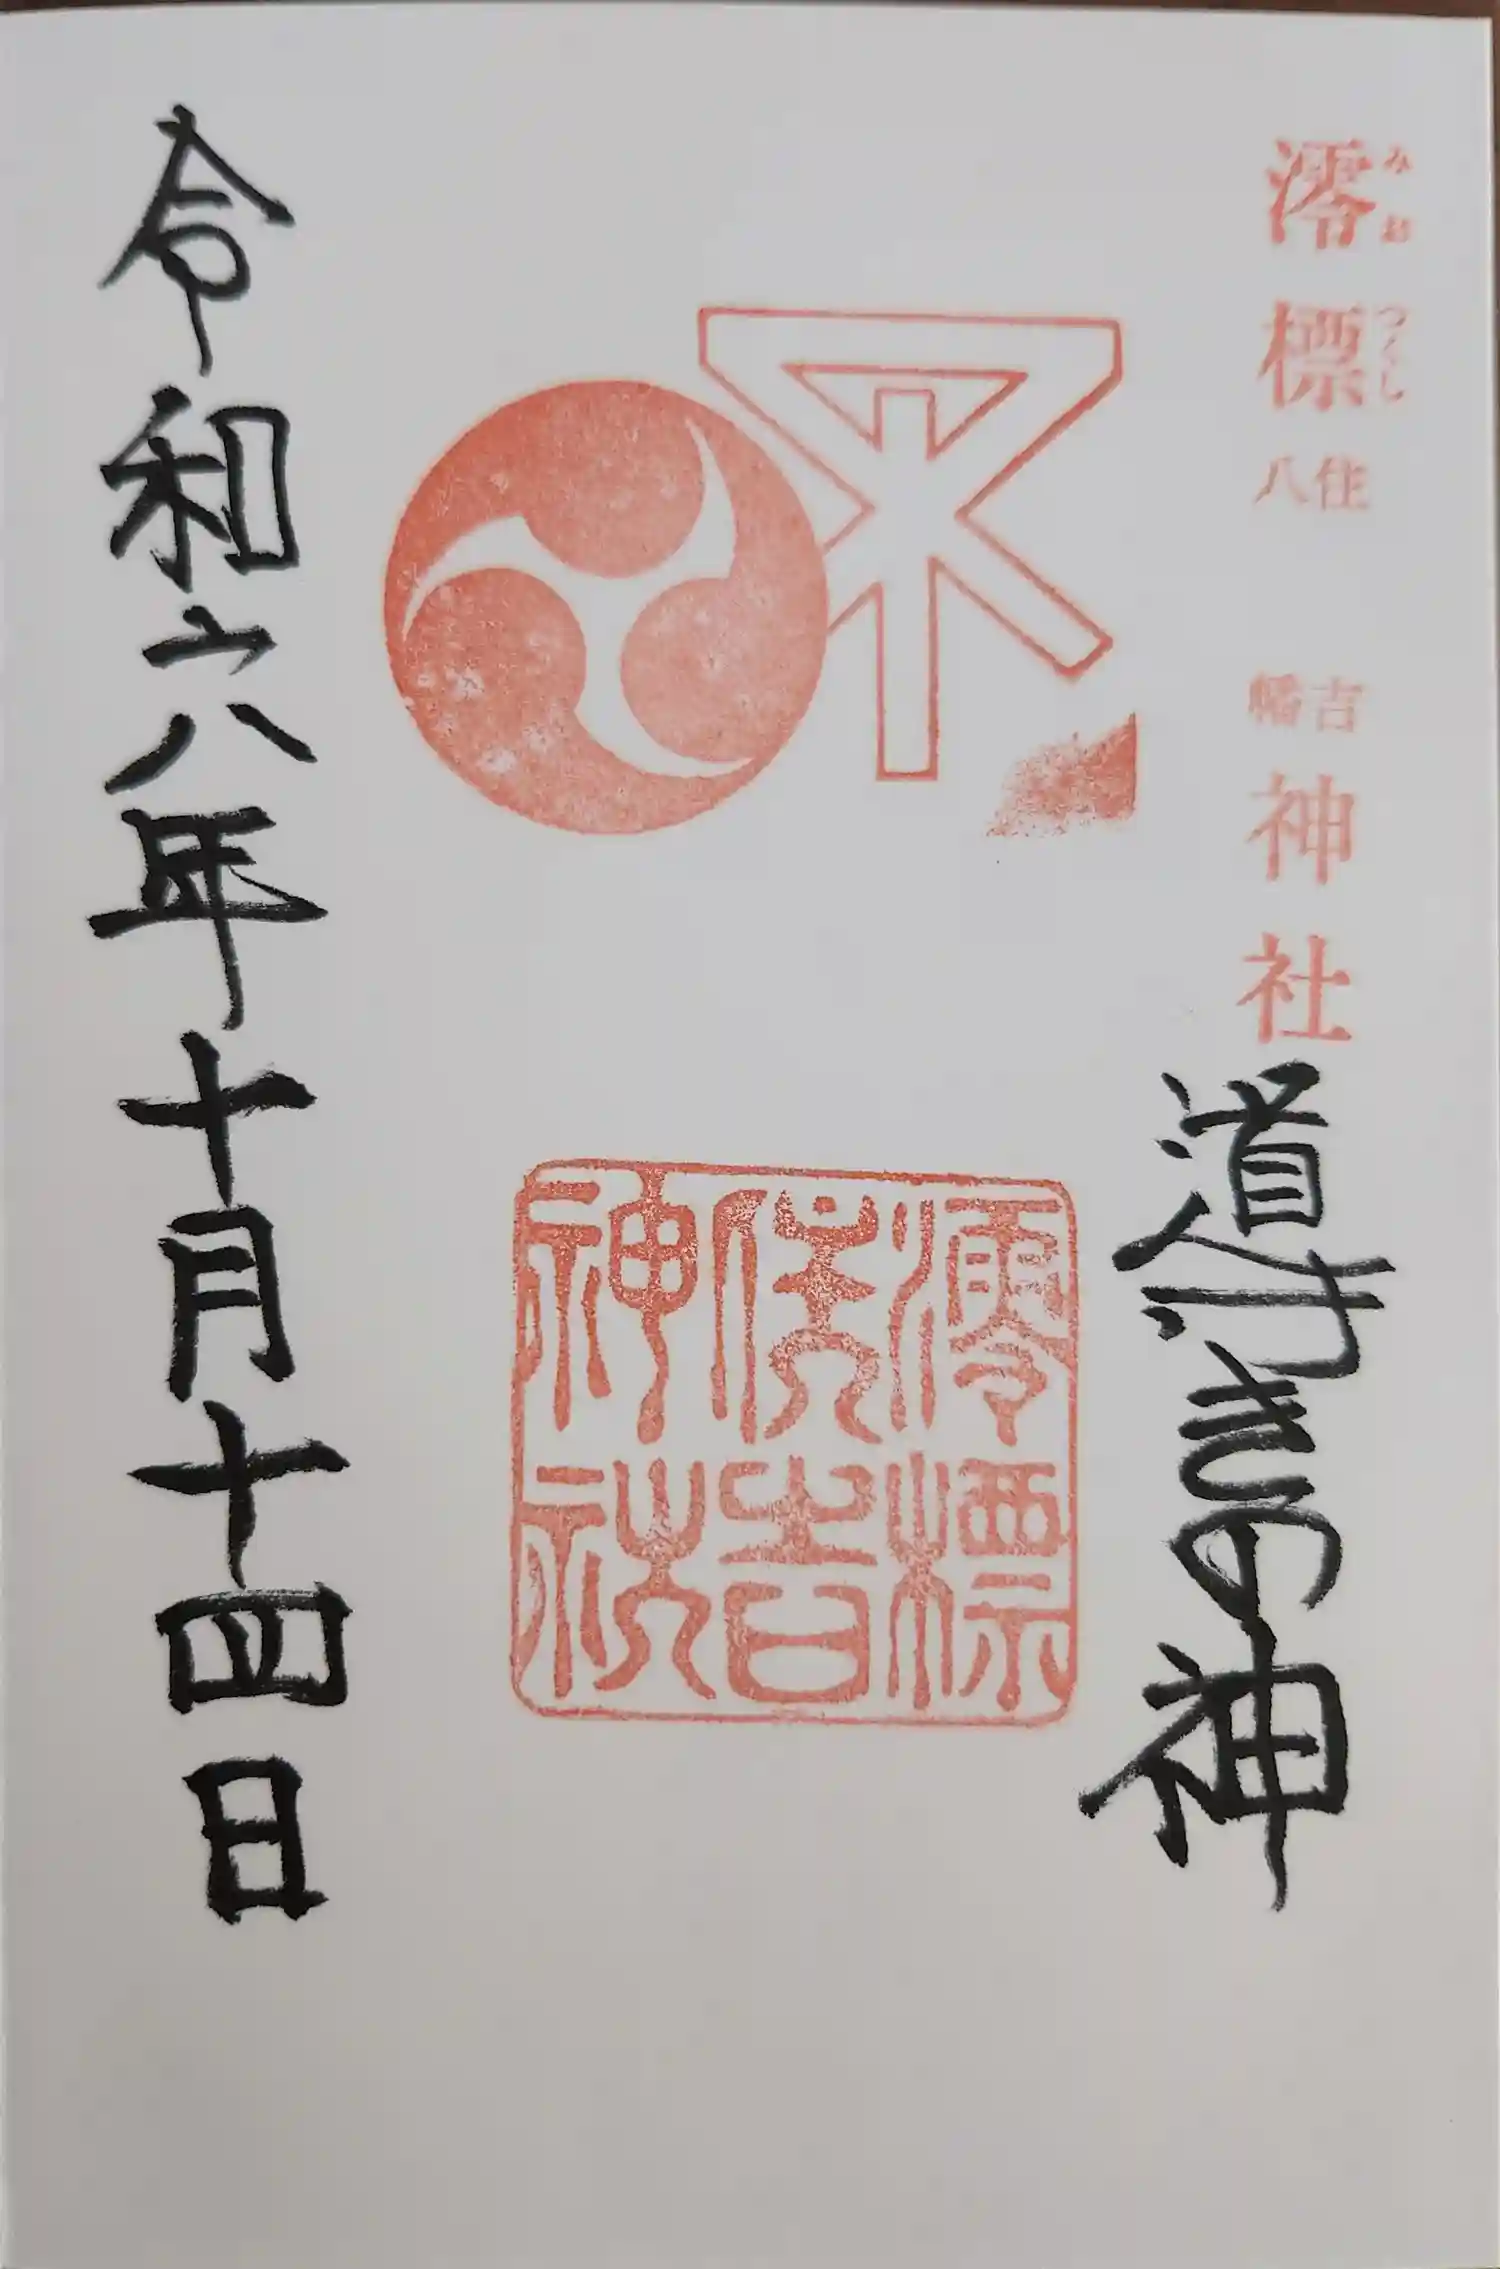 澪標住吉八幡神社
みおつくし
導きの神
澪標
住吉
神社
令和六年十月十四日